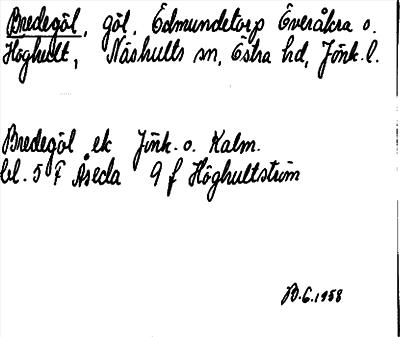 Bredegöl, göl, Edmundetorp Överåkra o.
Höghult, Näshults sn, Östra hd, Jönk. l.
Bredegöl ek Jönk. o. Kalm.
bl. 5 F Åseda 9 f Höghultström
B.6.1958